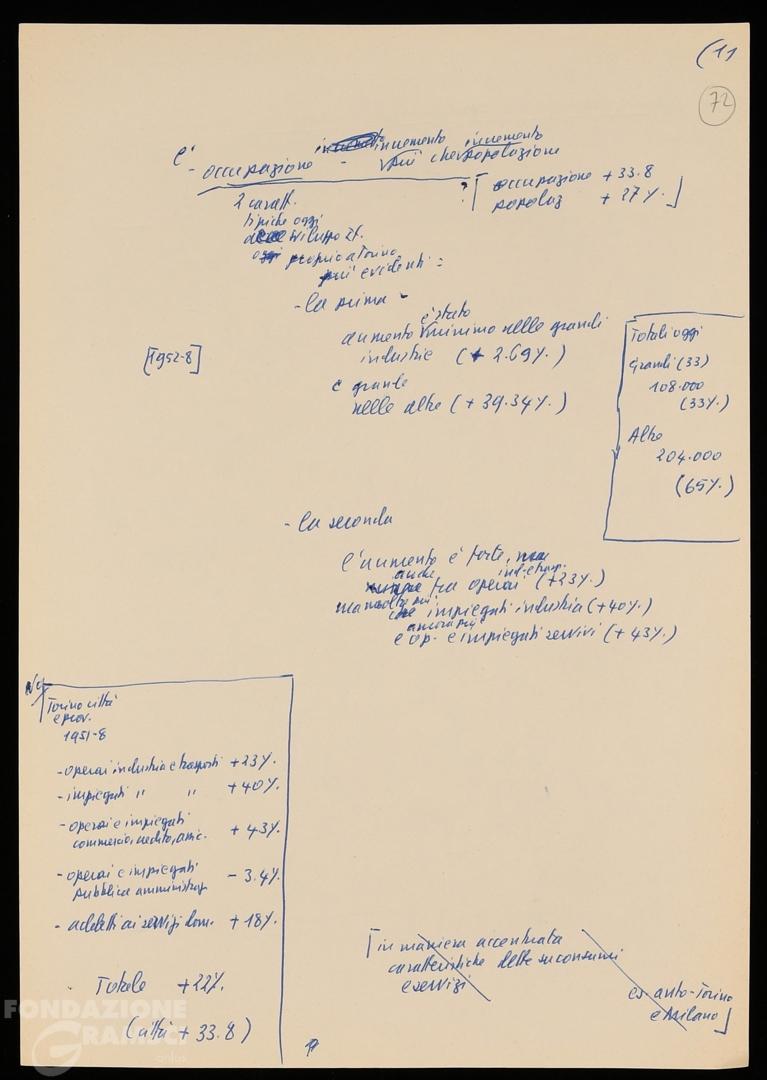 (11
72
e'
incremento incremento
- occupazione - più che popolazione
? [ occupazione + 33.8
popolaz + 27%. ]
2 caratt.
tipiche oggi
sviluppo it.
proprio a Torino
più evidenti:
- la prima -
è stato
aumento minimo nelle grandi
industrie (+ 2.69%.)
[1952-8]
e grande
nelle altre (+ 39.34%.)
Totali oggi
Grandi (33)
108.000
(33%.)
Altre
204.000
(65%.)
- la seconda
l'aumento è forte,
anche ind. e trasp.
tra operai (+23%.)
ma molto più
impiegati industria (+40%.)
ancora più
e op. e impiegati servizi (+ 43%.)
No
Torino città
e prov.
1951-8
- operai industria e trasporti +23%.
- impiegati " " +40%.
- operai e impiegati
commercio, credito, assic. + 43%.
- operai e impiegati
pubblica amministraz - 3.4%.
- addetti ai servizi dom. + 18%.
Totale +22%.
(città + 33.8)
[ in maniera accentrata
caratteristiche dette su consumi
e servizi
es. auto-Torino
e Milano ]
FONDAZIONE
GRAMSCI
onlus